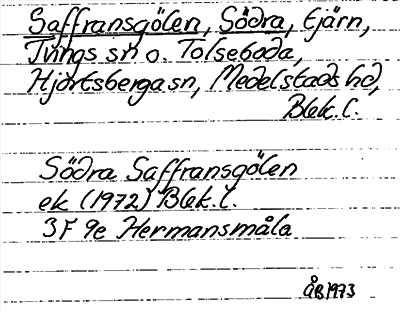 Saffransgölen, Södra, tjärn,
Tvings sn o. Tolseboda,
Hjortsberga sn, Medelstads hd,
Blek. l.
Södra Saffransgölen
ek (1972) Blek. l.
3F 9e Hermansmåla
ÅB 1973